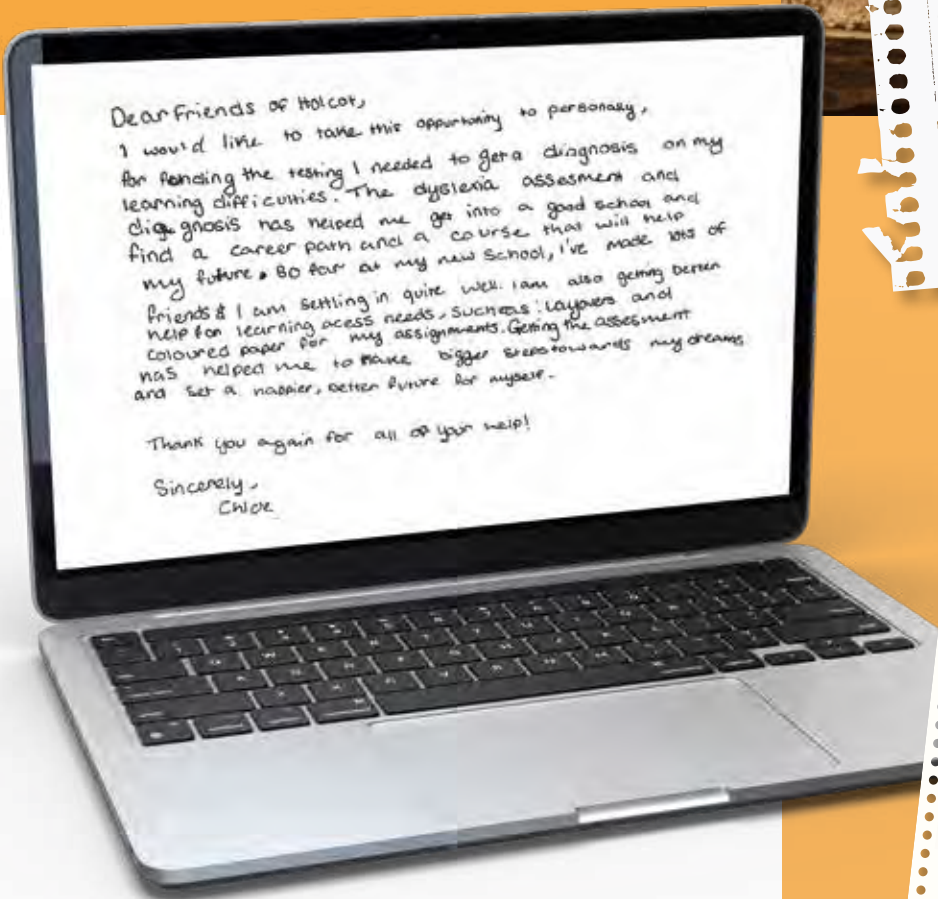 Dear Friends of Holcot,
I would like to take this oppurtunity to personaly,
for fonding the testing I needed to get a diagnosis on my
learning difficulties. The dyslexia assesment and
diagnosis has helped me get into a good school and
find a career path and a course that will help
my future. So far at my new school, I've made lots of
friends & I am settling in quite well. I am also getting better
help for learning acess needs, such as: Layovers and
coloured paper for my assignments. Getting the assesment
has helped me to make bigger steps towards my dreams
and set a happier, better future for myself.
Thank you again for all of your help!
Sincerely,
Chloe